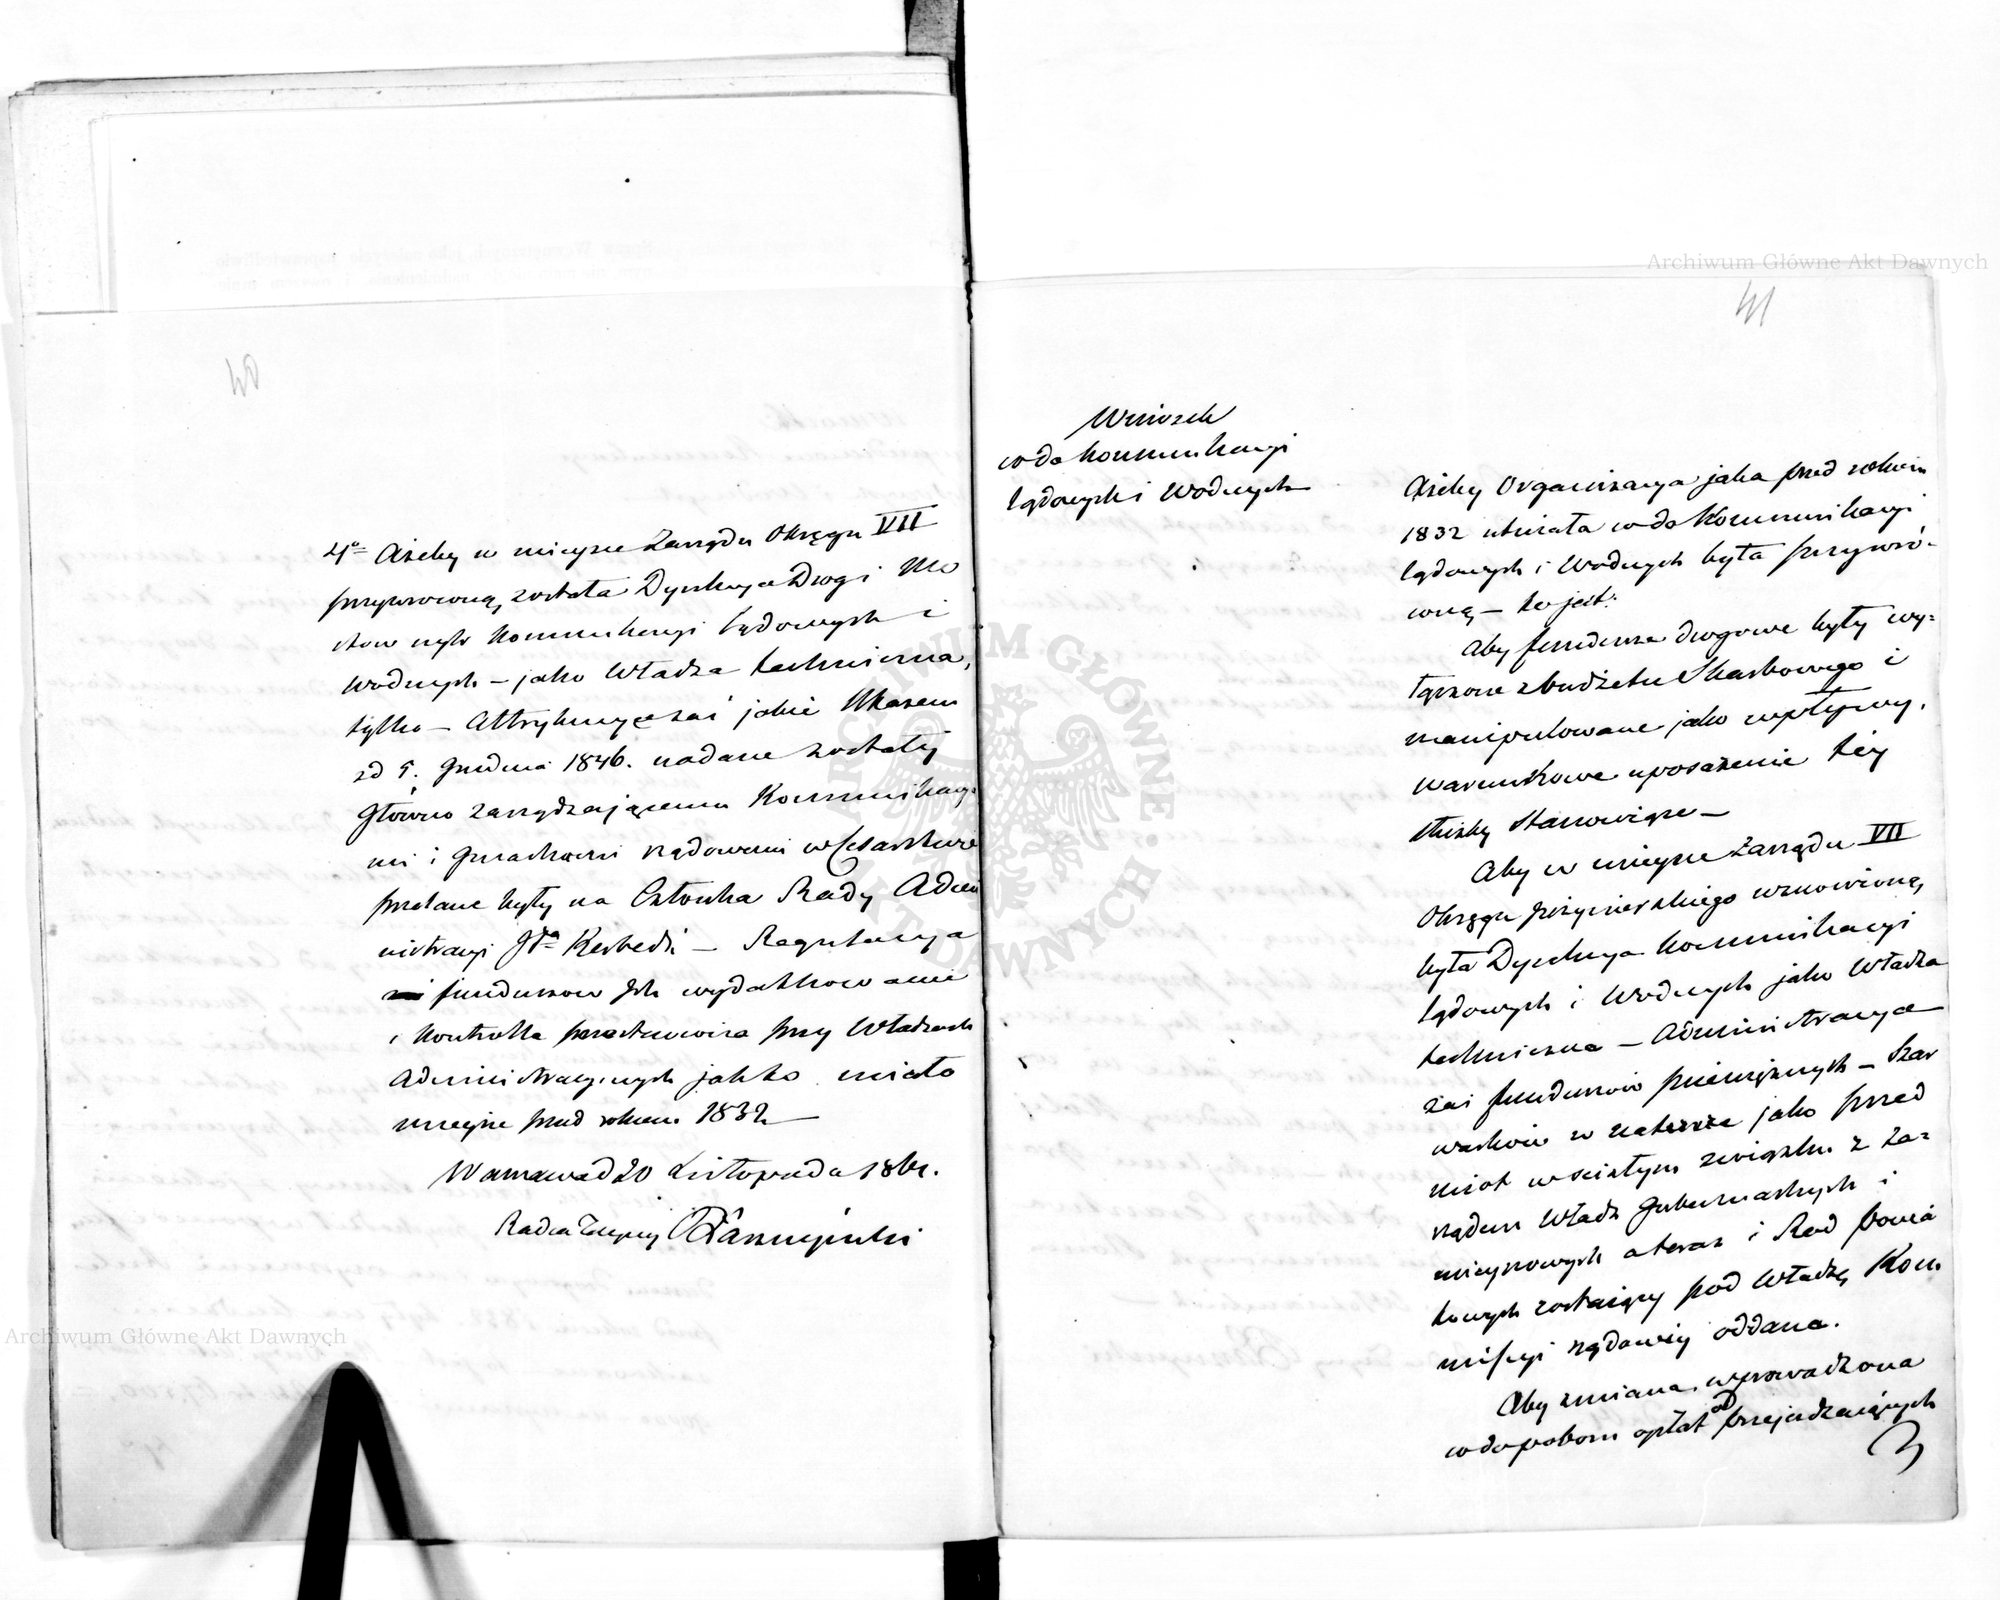 40
4º Ażeby w mieysce Zarządu Okręgu VII
przywroconą została Dyrekcya Drogi Mo
stow czyli Kommunikacyi Lądowych i
Wodnych – jako Władza techniczna,
tylko – Attrybucye zaś jakie Ukazem
zd 5. Grudnia 1846. nadane zostały
Główno zarządzającemu Kommunikacy-
mi i Gmachami rządowemi w Cesarstwie
przelane były na Członka Rady Admi
nistracyi Jła Kerbedź – Regulacya
funduszow Ich wydatkowanie
i Kontrolla przy Władzach
Administracyinych jak to miało
mieysce przed rokiem 1832 –
Warszawa d 20 Listopada 1861.
Radca
Archiwum Główne Akt Dawnych
41
Wniosek
co do Kommunikacyi
lądowych i Wodnych
Ażeby Organizacya jaka przed rokiem
1832 istniała co do Kommunikacyi
lądowych i Wodnych była przywró-
coną – to jest:
Aby fundusze drogowe były wy-
łączone z budżetu Skarbowego i
manipulowane jako wpływy,
warunkowe uposażenie tey
służby stanowiące –
Aby w mieysce Zarządu VII
Okręgu Inżynierskiego wznowioną
była Dyrekcya Kommunikacyi
lądowych i Wodnych jako Władza
techniczna – Administracya
zaś funduszów pieniężnych – Szar
warków w naturze jako przed
miot w ścisłym związku z Za-
rządem Władz Gubernialnych i
mieyscowych a teraz i Rad Powia
towych zostaiący pod Władzę Kom
missyi rządowey oddana.
Aby zmiana wprowadzona
co do poboru opłat od przejeżdzaiących
Archiwum Główne Akt Dawnych
ARCHIWUM GŁÓWNE AKT DAWNYCH